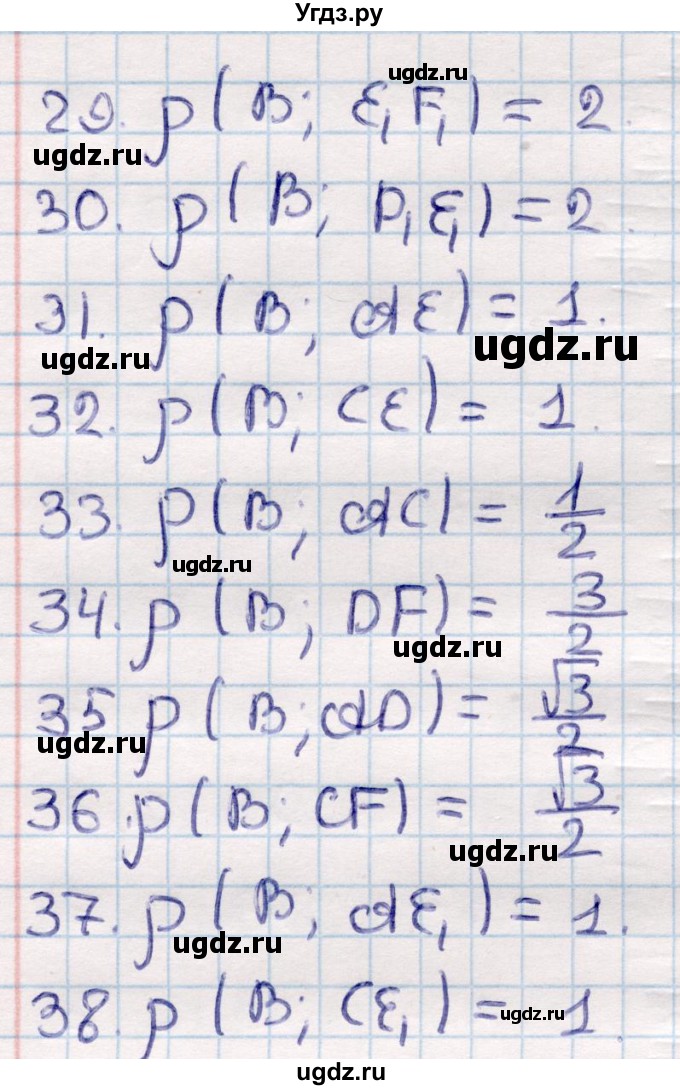 Угдз.ру
ugdz.ru
29. ρ(B; E₁F₁) = 2.
ugdz.ru
30. ρ(B; D₁E₁) = 2.
31. ρ(B; AE) = 1.
ugdz.ru
ugdz.ru
32. ρ(B; CE) = 1.
33. ρ(B; AC) = 1/2
ugdz.ru
34. ρ(B; DF) = 3/2
ugdz.ru
35 ρ(B; AD) = √3/2
ugdz.ru
36. ρ(B; CF) = √3/2
ugdz.ru
37. ρ(B; AE₁) = 1.
ugdz.ru
38. ρ(B; CE₁) = 1.
ugdz.ru
ugdz.ru